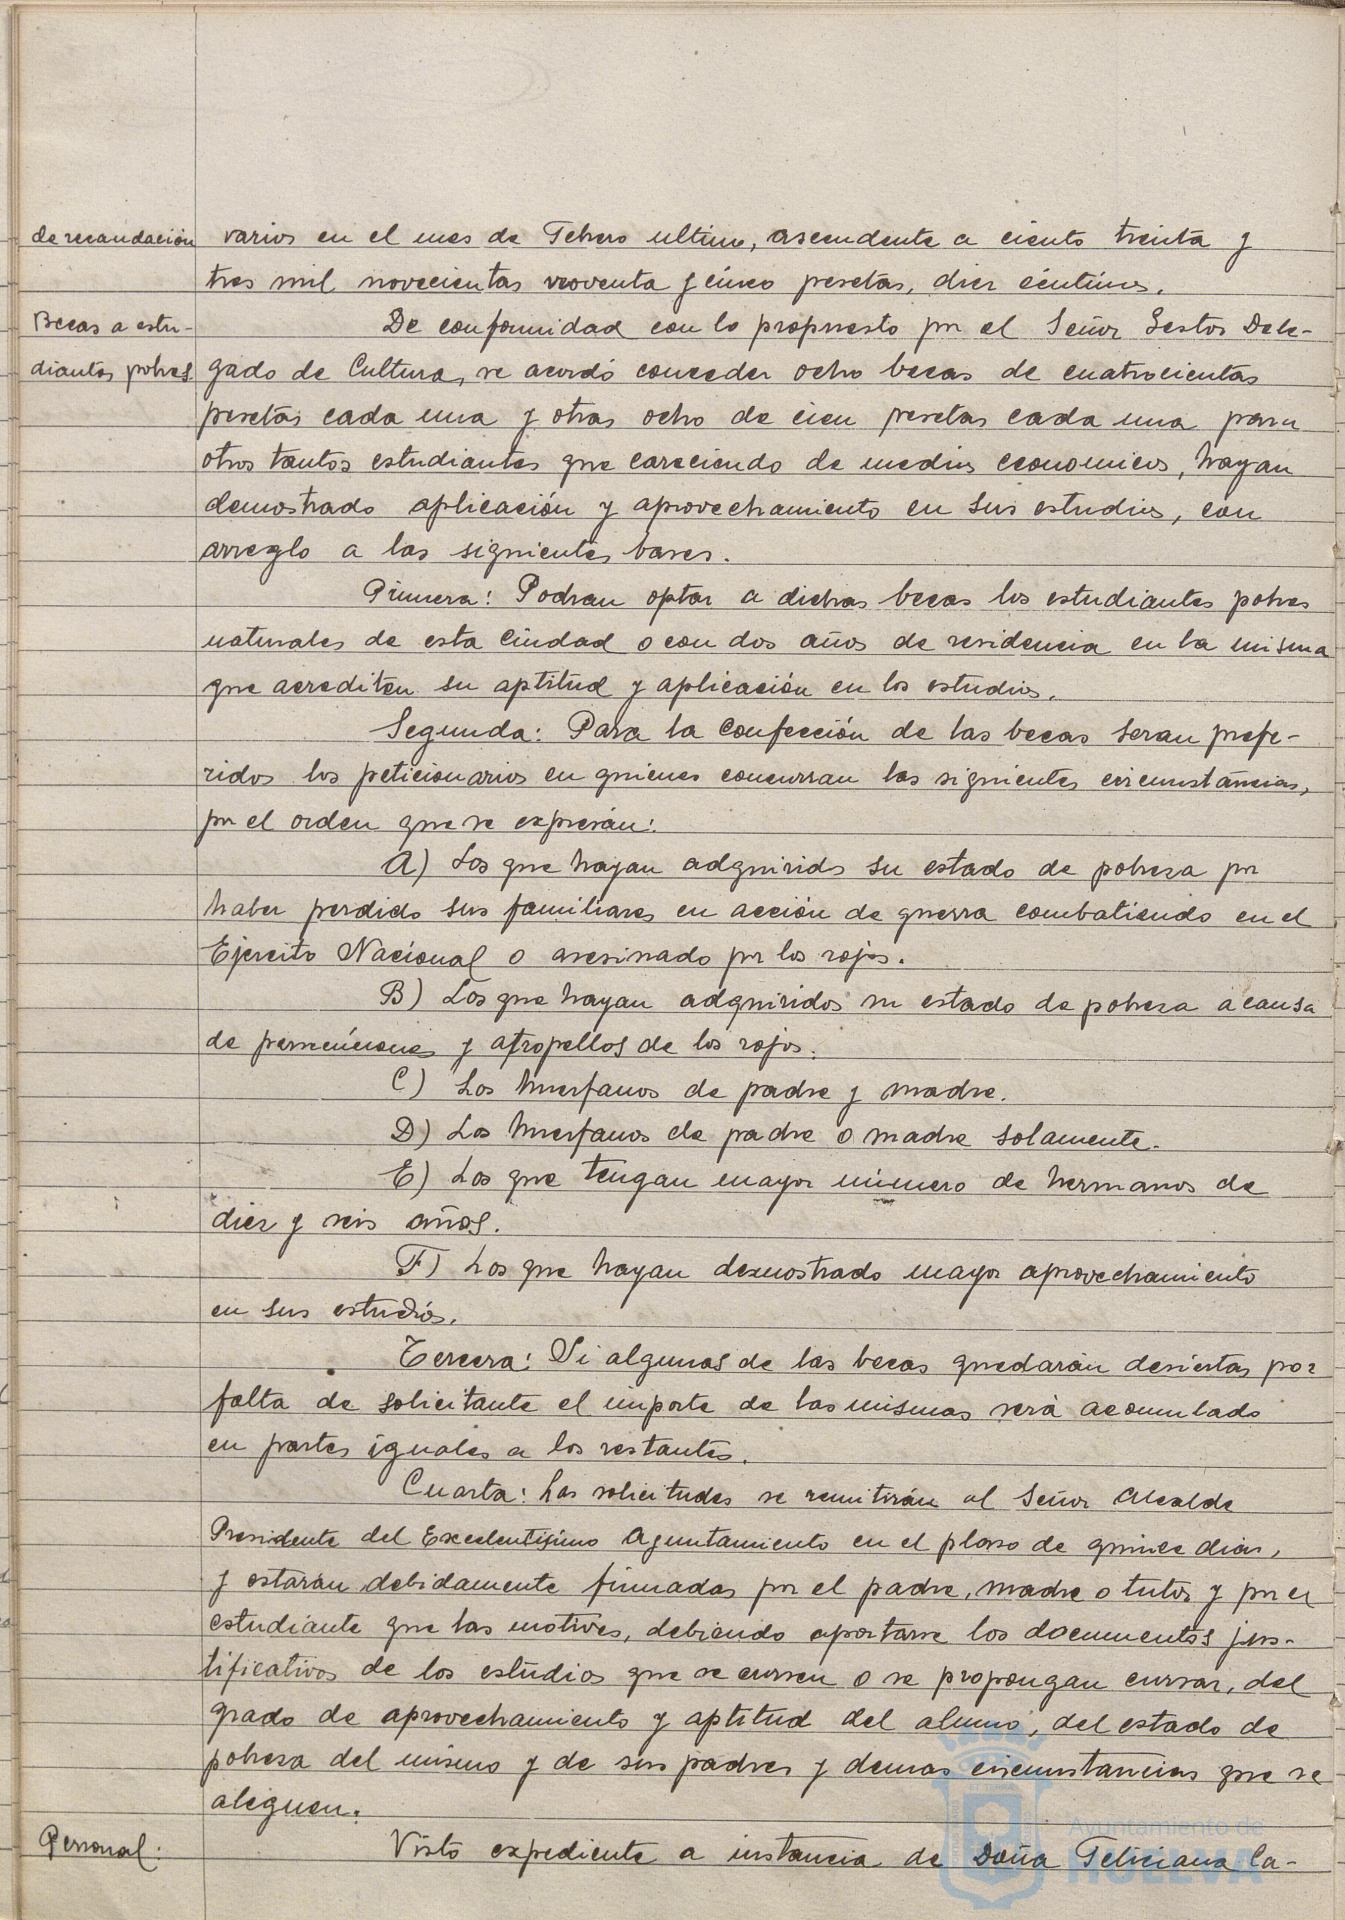 de recaudación varios en el mes de Febrero ultimo, ascendente a ciento treinta y
tres mil novecientas noventa y cinco pesetas, diez céntimos.
Becas a estu- De conformidad con lo propuesto por el Señor Gestor Dele-
diantes pobres gado de Cultura, se acordó conceder ocho becas de cuatrocientas
pesetas cada una y otras ocho de cien pesetas cada una para
otros tantos estudiantes que careciendo de medios economicos, hayan
demostrado aplicación y aprovechamiento en sus estudios, con
arreglo a las siguientes bases.
Primera: Podran optar a dichas becas los estudiantes pobres
naturales de esta Ciudad o con dos años de residencia en la misma
que acrediten su aptitud y aplicación en los estudios.
Segunda: Para la confección de las becas seran prefe-
ridos los peticionarios en quienes concurran las siguientes circunstancias,
por el orden que se expresan:
A) Los que hayan adquirido su estado de pobreza por
haber perdido sus familiares en acción de guerra combatiendo en el
Ejercito Nacional o asesinado por los rojos.
B) Los que hayan adquiridos su estado de pobreza a causa
de persecuciones y atropellos de los rojos.
C) Los huerfanos de padre y madre.
D) Los huerfanos de padre o madre solamente.
E) Los que tengan mayor número de hermanos de
diez y seis años.
F) Los que hayan demostrado mayor aprovechamiento
en sus estudios.
Tercera: Si algunas de las becas quedarán desiertas por
falta de solicitante el importe de las mismas será acomulado
en partes iguales a los restantes.
Cuarta: Las solicitudes se remitirán al Señor Alcalde
Presidente del Excelentisimo Ayuntamiento en el plazo de quince dias,
y estarán debidamente firmadas por el padre, madre o tutor y por el
estudiante que las motives, debiendo aportarse los documentos jus-
tificativos de los estudios que se cursen o se propongan cursar, del
grado de aprovechamiento y aptitud del alumno, del estado de
pobreza del mismo y de sus padres y demas circunstancias que se
aleguen.
Personal: Visto expediente a instancia de Doña Feliciana Ca-
Ayuntamiento de
HUELVA